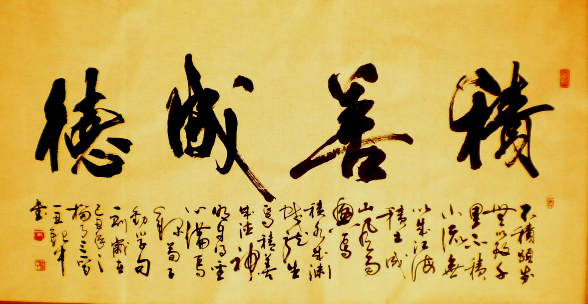 積善成德
不積步
無以致千
里不積
小流無
以成江海
積土成
山風雨
興焉
積水成淵
蛟龍生
焉積善
成德神
明自得聖
心備焉
荀子
勸學句
歲在